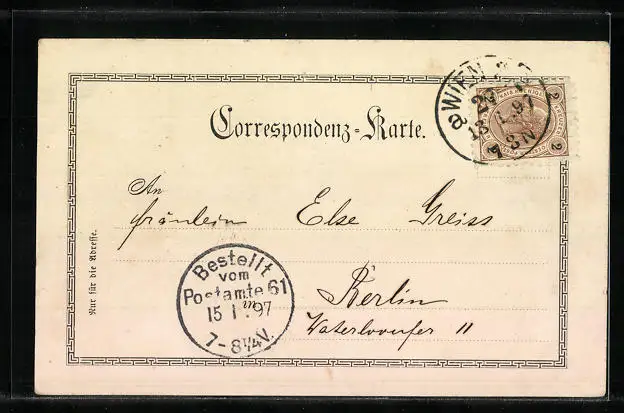 WIEN
13 1. 97
3 N
2 2
2 2
Correspondenz-Karte.
An
Fräulein Else Greiss
Nur für die Adresse.
Bestellt
vom
Postamte 61
15 1 97
7-8¼V.
Berlin
Waterlooufer 11